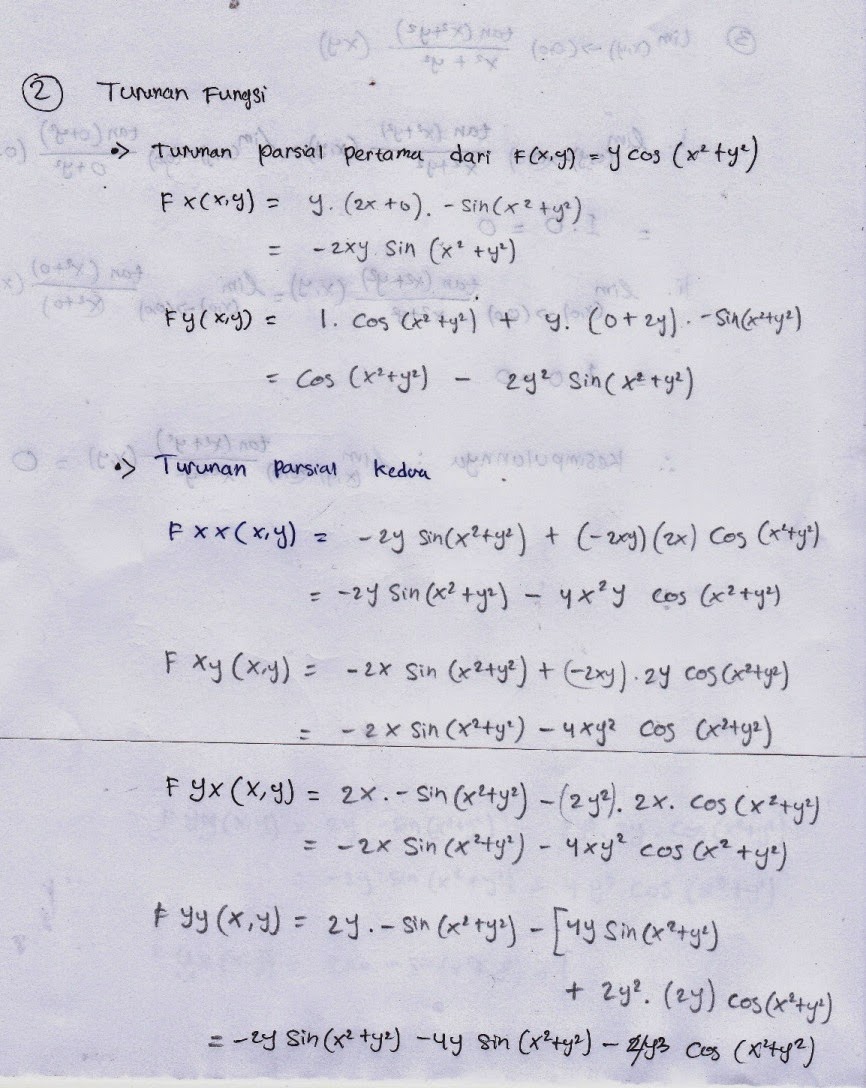 ② Turunan Fungsi
•> Turunan parsial pertama dari F(x,y) = y cos (x² + y²)
F x(x,y) = y. (2x + 0). - sin(x² + y²)
= - 2xy sin (x² + y²)
F y(x,y) = 1. cos (x² + y²) + y. (0 + 2y). - Sin(x²+y²)
= cos (x²+y²) - 2y² sin(x² + y²)
•> Turunan parsial kedua
F xx(x,y) = - 2y sin(x²+y²) + (-2xy)(2x) cos (x²+y²)
= -2y sin (x² + y²) - 4x²y cos (x² + y²)
F xy (x,y) = -2x sin (x²+y²) + (-2xy). 2y cos(x²+y²)
= - 2x sin(x²+y²) - 4xy² cos (x²+y²)
F yx(x,y) = 2x. - sin(x²+y²) - (2y²). 2x. cos (x²+y²)
= -2x sin (x²+y²) - 4xy² cos (x² + y²)
F yy(x,y) = 2y. - sin (x²+y²) - [4y sin(x²+y²)
+ 2y². (2y) cos(x²+y²)
= -2y sin(x² + y²) - 4y sin (x²+y²) - 4y³ cos (x²+y²)